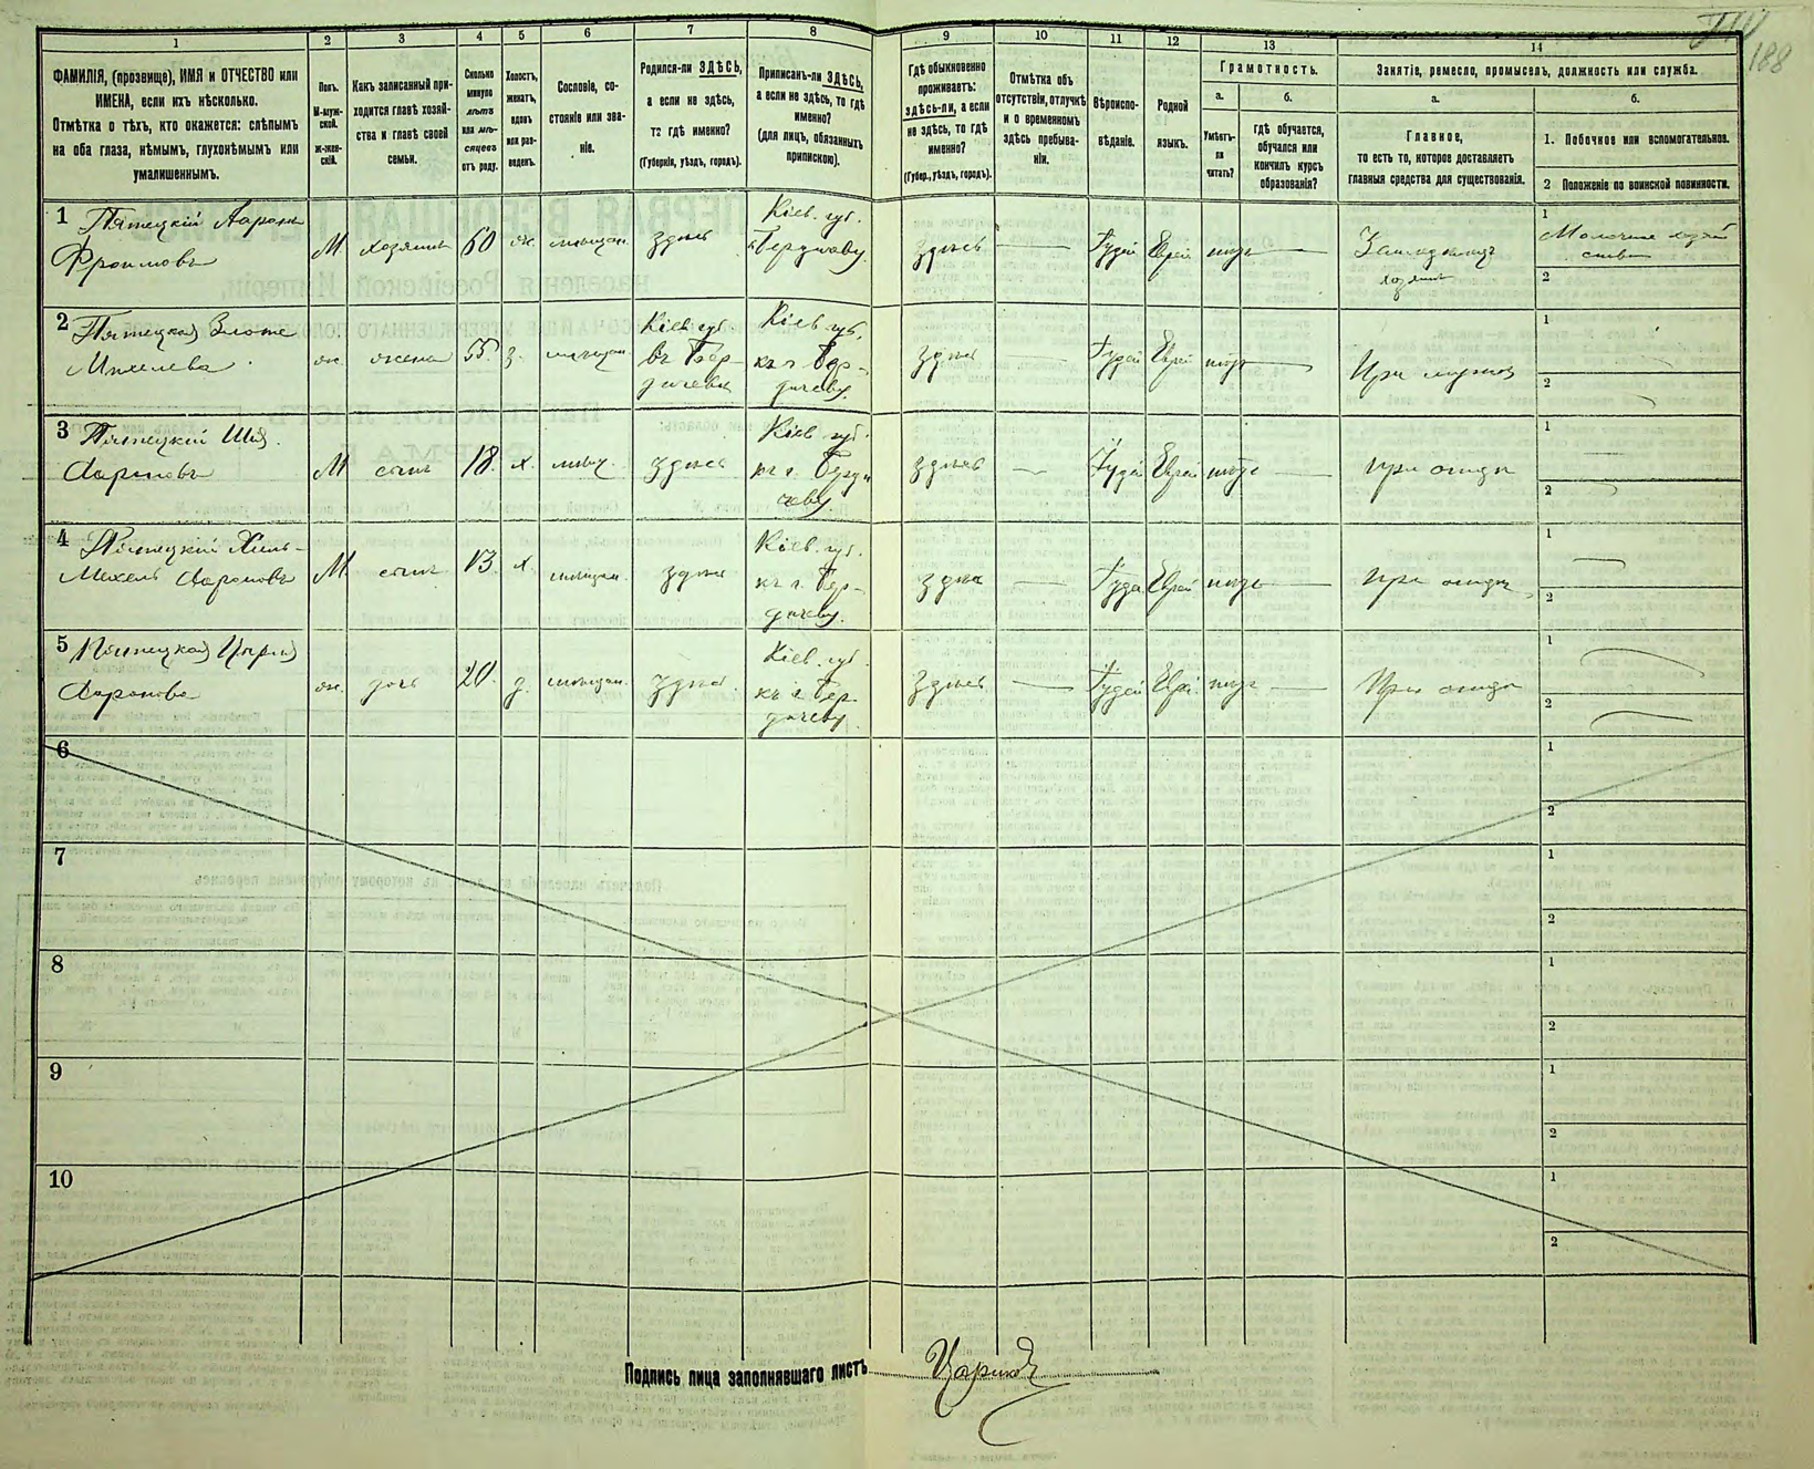 188
1 2 3 4 5 6 7 8 9 10 11 12 13 14
ФАМИЛІЯ, (прозвище), ИМЯ и ОТЧЕСТВО или
ИМЕНА, если ихъ нѣсколько.
Отмѣтка о тѣхъ, кто окажется: слѣпымъ
на оба глаза, нѣмымъ, глухонѣмымъ или
умалишеннымъ.
Полъ.
М-муж-
ской.
Ж-жен-
скій.
Какъ записанный при-
ходится главѣ хозяй-
ства и главѣ своей
семьи.
Сколько
минуло
лѣтъ
или мѣ-
сяцевъ
отъ роду.
Холостъ,
женатъ,
вдовъ
или раз-
веденъ.
Сословіе, со-
стояніе или зва-
ніе.
Родился-ли ЗДѢСЬ,
а если не здѣсь,
то гдѣ именно?
(Губернія, уѣздъ, городъ).
Приписанъ-ли ЗДѢСЬ,
а если не здѣсь, то гдѣ
именно?
(для лицъ, обязанныхъ
припискою).
Гдѣ обыкновенно
проживаетъ:
здѣсь-ли, а если
не здѣсь, то гдѣ
именно?
(Губер., уѣздъ, городъ).
Отмѣтка объ
отсутствіи, отлучкѣ
и о временномъ
здѣсь пребыва-
ніи.
Вѣроиспо-
вѣданіе.
Родной
языкъ.
Грамотность.
а. б.
Умѣетъ-
ли
читать?
гдѣ обучается,
обучался или
кончилъ курсъ
образованія?
Занятіе, ремесло, промыселъ, должность или служба.
а. б.
Главное,
то есть то, которое доставляетъ
главныя средства для существованія.
1. Побочное или вспомогательное.
2 Положеніе по воинской повинности.
1 Пятецкій Ааронъ
Фроимовъ
М. хозяинъ 60 ж. мѣщан. здѣсь
Кіев. губ.
Бердичеву
здѣсь — Іудей Еврей нѣтъ —
хозяинъ
1
Молочное хозяй
ство
2
2 Пятецкая Злота
Михелева
ж. жена 55. з. мѣщан.
Кіев. губ.
въ Бер-
дичевѣ
Кіев. губ.
къ г. Бер-
дичеву.
здѣсь — Іудей Еврей нѣтъ — При мужѣ
1
2
3 Пятецкій
Аароновъ
М сынъ 18. х. мѣщ. здѣсь
Кіев. губ.
къ г. Берди
чеву.
здѣсь — Іудей Еврей нѣтъ — при отцѣ
1
2
4 Пятецкій Хиль-
Михель Аароновъ
М. сынъ 13. х. мѣщан. здѣсь
Кіев. губ.
къ г. Бер-
дичеву.
здѣсь — Іудей Еврей нѣтъ — при отцѣ
1
2
5 Пятецкая
Ааронова
ж. дочь 20. д. мѣщан. здѣсь.
Кіев. губ.
къ г. Бер-
дичеву.
здѣсь — Іудей Еврей нѣтъ — При отцѣ
1
2
6
1
2
7
1
2
8
1
2
9
1
2
10
1
2
Подпись лица заполнявшаго листъ